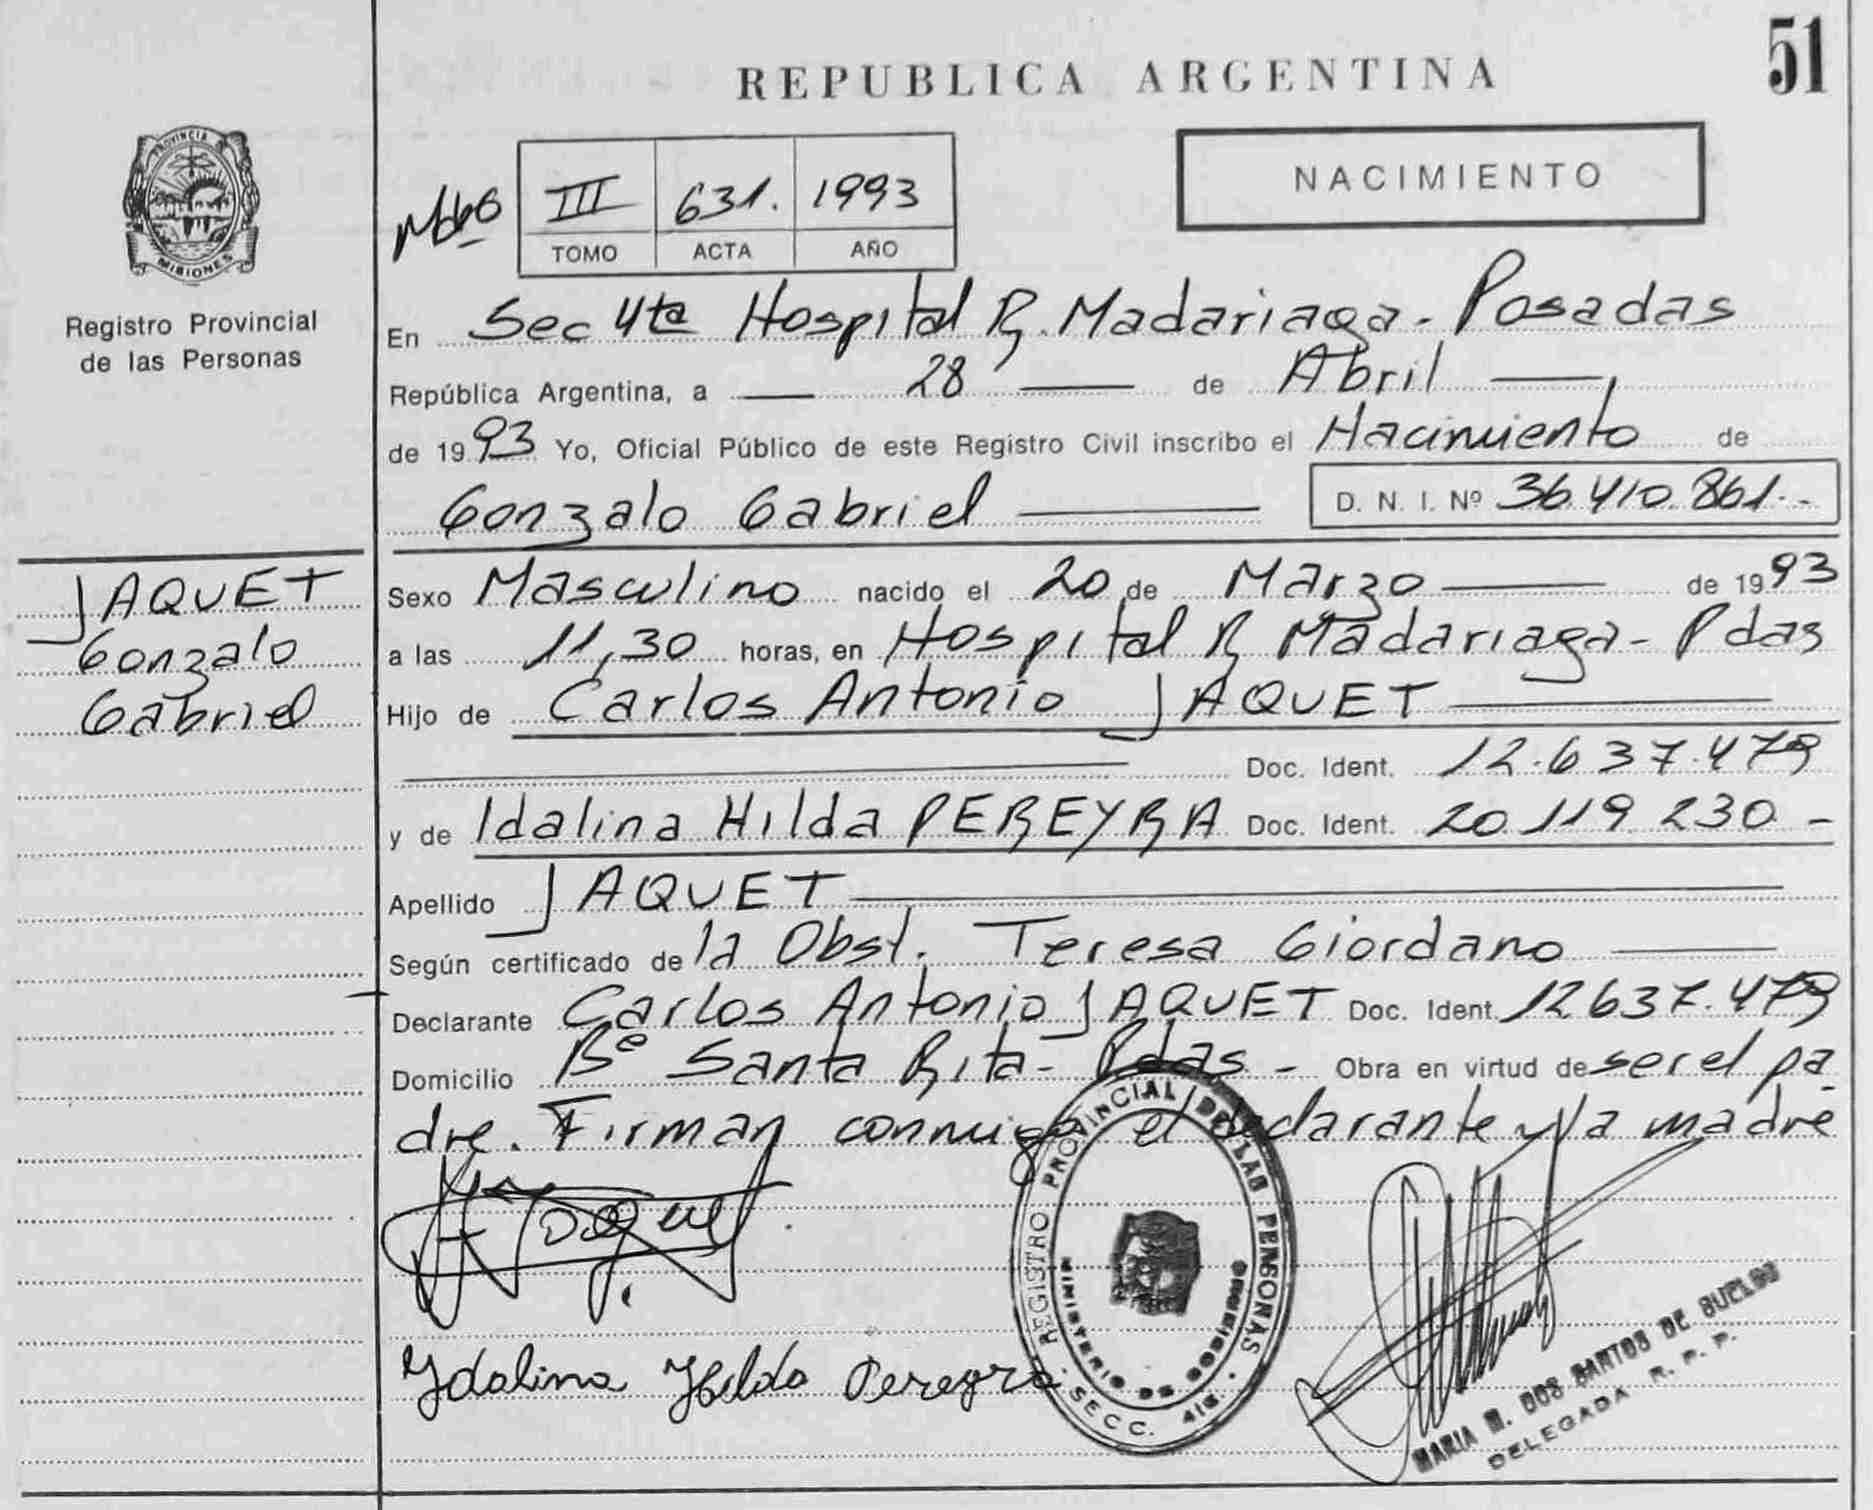 51
REPUBLICA ARGENTINA
PROVINCIA D
MISIONES
Registro Provincial
de las Personas
III 631. 1993
TOMO ACTA AÑO
NACIMIENTO
En Sec 4ta Hospital R. Madariaga - Posadas
República Argentina, a 28 de Abril
de 1993 Yo, Oficial Público de este Registro Civil inscribo el Nacimiento de
Gonzalo Gabriel D. N. I. Nº 36.410.861.-
JAQUET
Gonzalo
Gabriel
Sexo Masculino nacido el 20 de Marzo de 1993
a las 11,30 horas, en Hospital R Madariaga - Pdas
Hijo de Carlos Antonio JAQUET
Doc. Ident. 12.637.479
y de Idalina Hilda PEREYRA Doc. Ident. 20.119.230 -
Apellido JAQUET
Según certificado de la Obst. Teresa Giordano
Declarante Carlos Antonio JAQUET Doc. Ident. 12637.479
Domicilio Bº Santa Rita - Pdas - Obra en virtud de ser el pa-
dre. Firman conmigo el declarante y la madre
Jaquet
Ydalina Hilda Pereyra
REGISTRO PROVINCIAL DE LAS PERSONAS
MINISTERIO DE GOBIERNO
SECC. 4ta.
MARIA M. DOS SANTOS DE BUELOS
DELEGADA R. P. P.